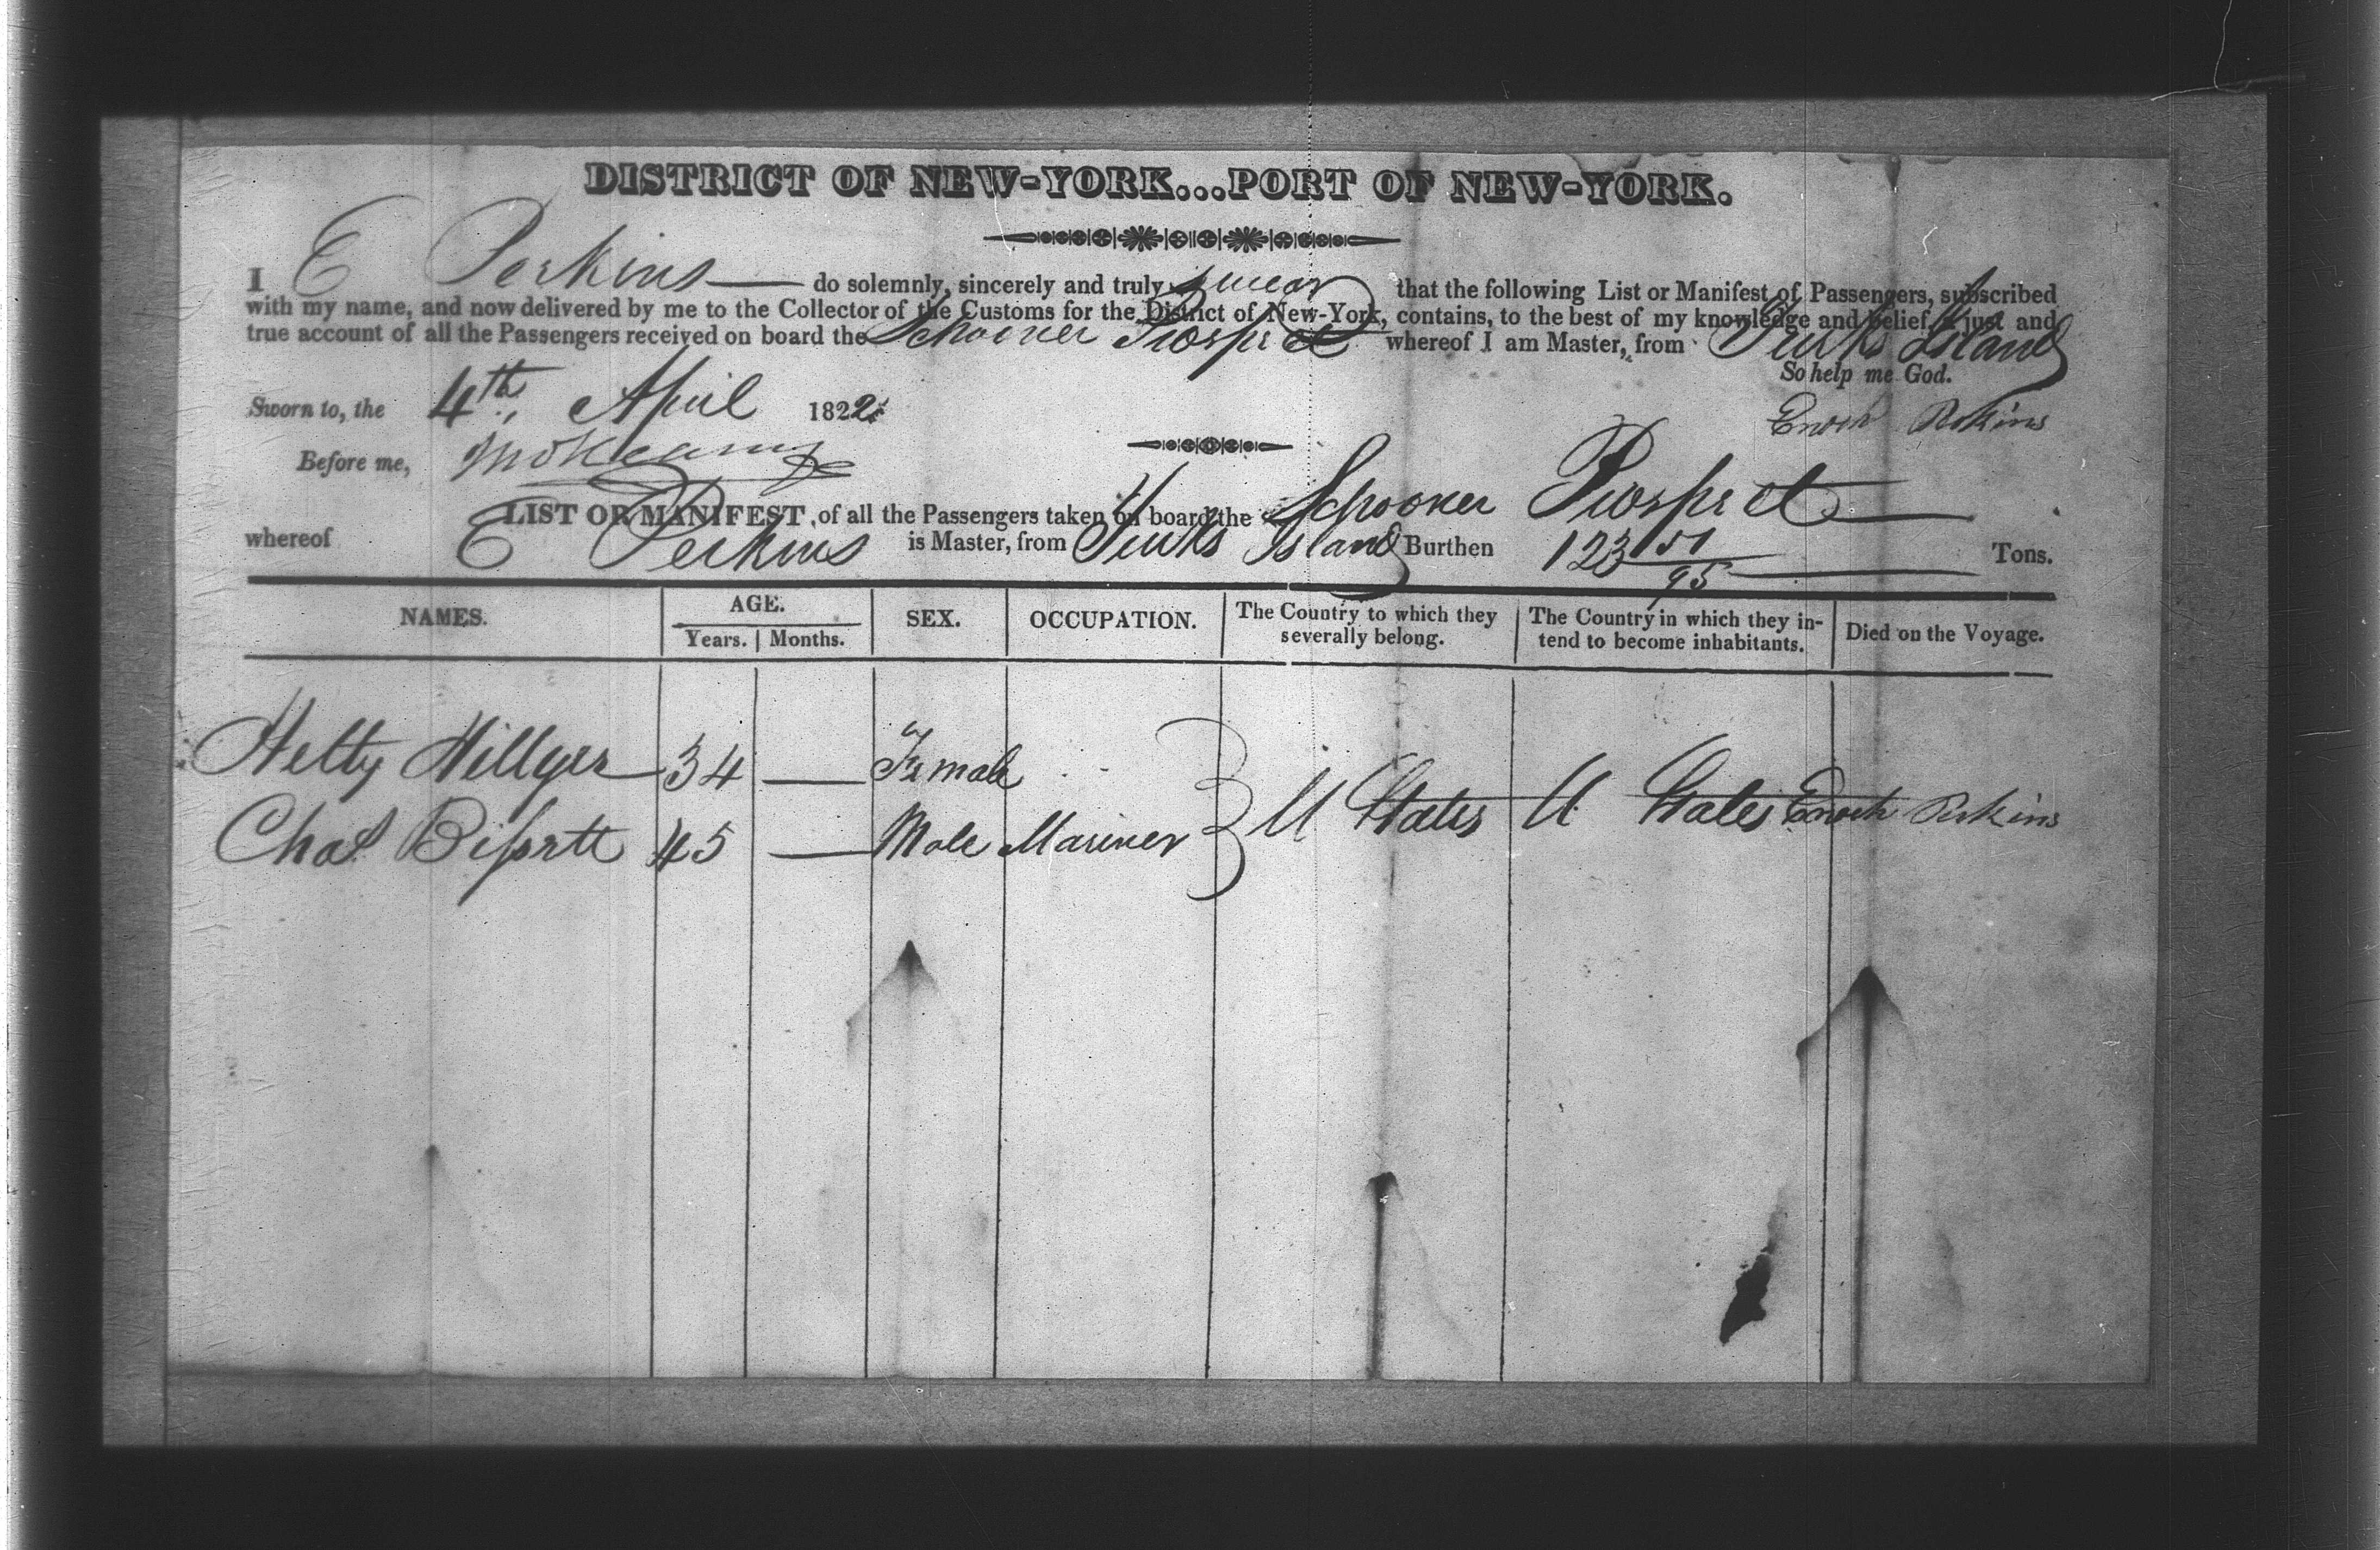 DISTRICT OF NEW-YORK...PORT OF NEW-YORK.
I E Perkins do solemnly, sincerely and truly swear that the following List or Manifest of Passengers, subscribed
with my name, and now delivered by me to the Collector of the Customs for the District of New-York, contains, to the best of my knowledge and belief, a just and
true account of all the Passengers received on board the Schooner Prospect whereof I am Master, from Turks Island
So help me God.
Sworn to, the 4th April 1822 Enoch Perkins
Before me,
LIST OR MANIFEST, of all the Passengers taken on board the Schooner Prospect
whereof E Perkins is Master, from Turks Island Burthen 123 51/95 Tons.
NAMES. AGE. Years. Months. SEX. OCCUPATION. The Country to which they severally belong. The Country in which they intend to become inhabitants. Died on the Voyage.
Hetty Hillyer 34 — Female
Chas Bissett 45 — Male Mariner } U States U States Enoch Perkins